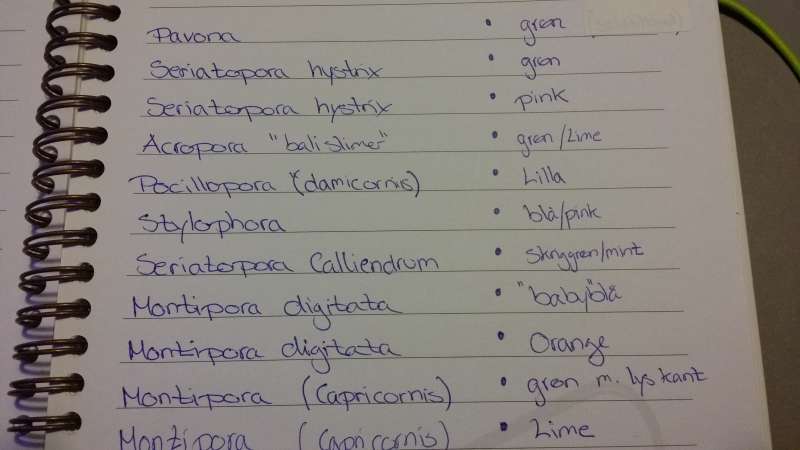 Pavona • grøn
Seriatopora hystrix • grøn
Seriatorpora hystrix • pink
Acropora "balislimer" • grøn/Lime
Pocillopora (damicornis) • Lilla
Stylorphora • blå/pink
Seriatorpora Calliendrum • Skriggrøn/mint
Montirpora digitata • "baby"blå
Montirpora digitata • Orange
Montirpora (Capricornis) • grøn m. lys kant
Montipora (Capricornis) • Lime